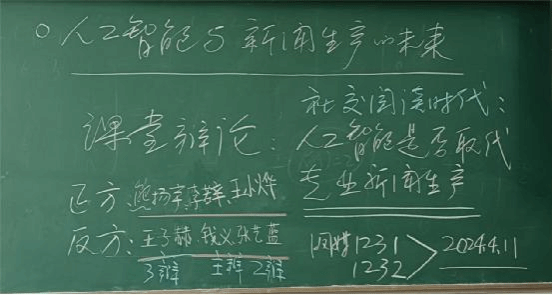 人工智能与新闻生产的未来
社交阅读时代：
课堂辩论：人工智能是否取代
专业新闻生产
正方：熊扬宇 李 王小烨
反方：王子赫 钱义 张艺蓝
3辩 主辩 2辩
网媒1231
1232
2024.4.11